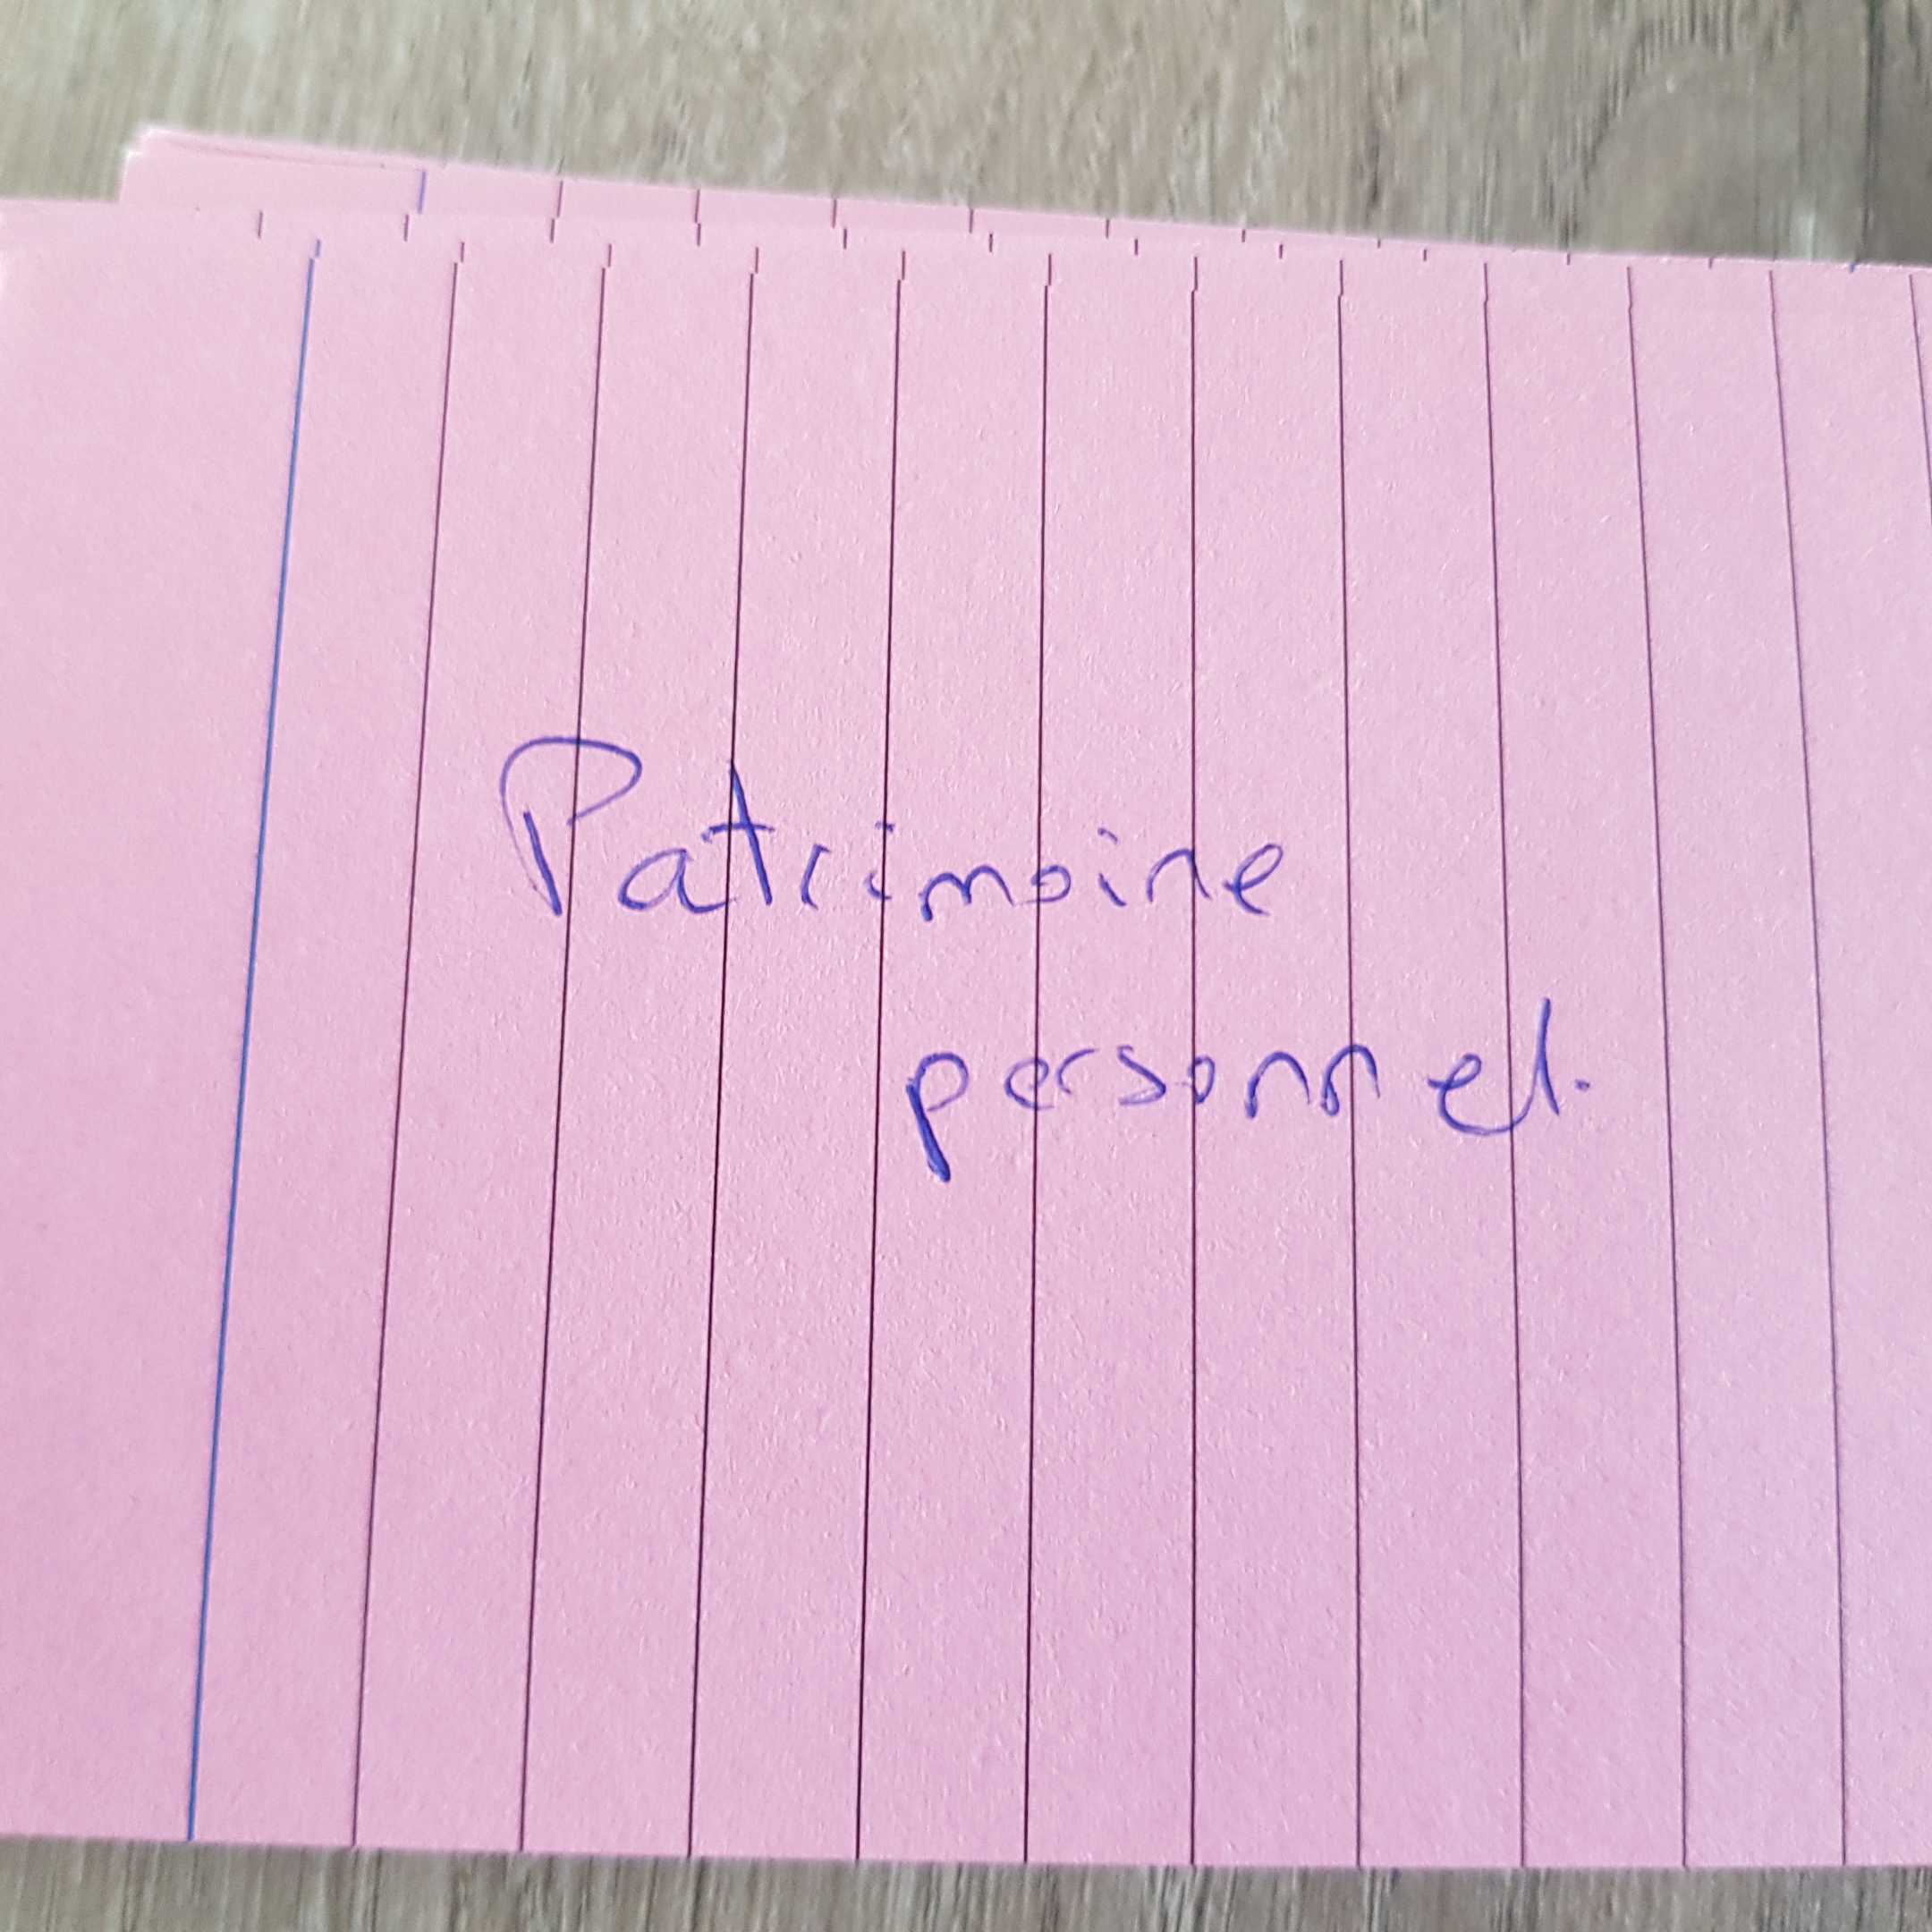 Patrimoine
personnel.